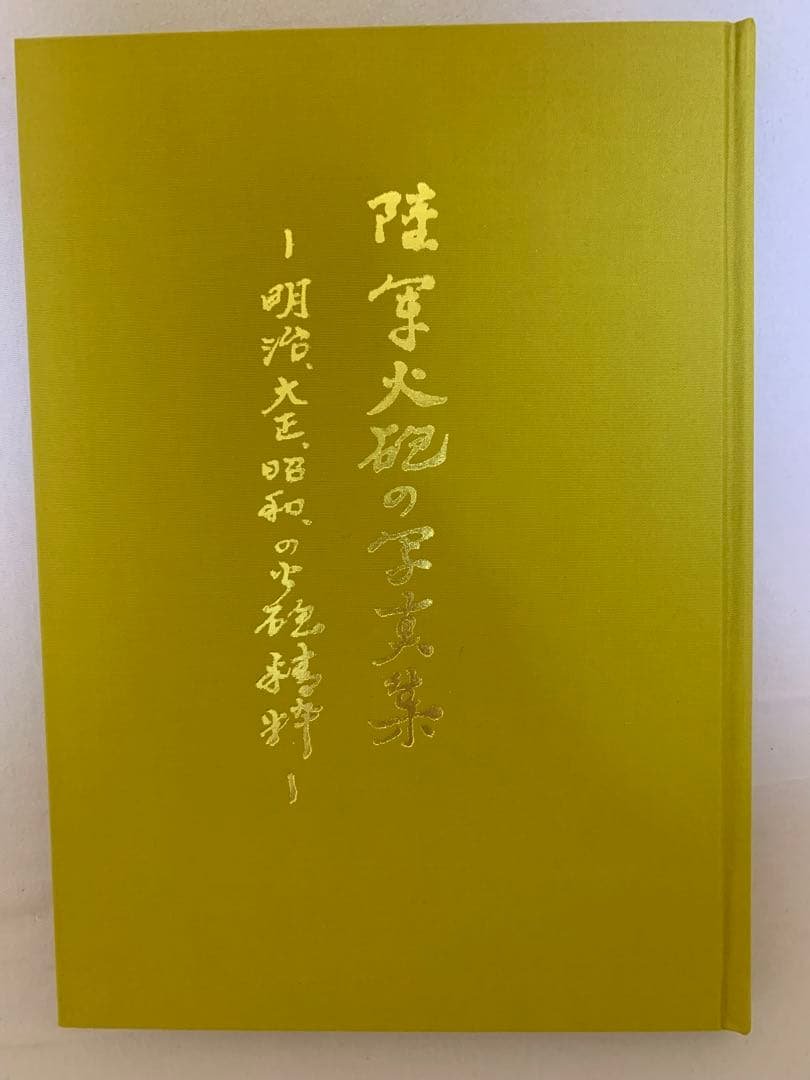 陸軍火砲の写真集
ー明治、大正、昭和、の火砲精粋ー